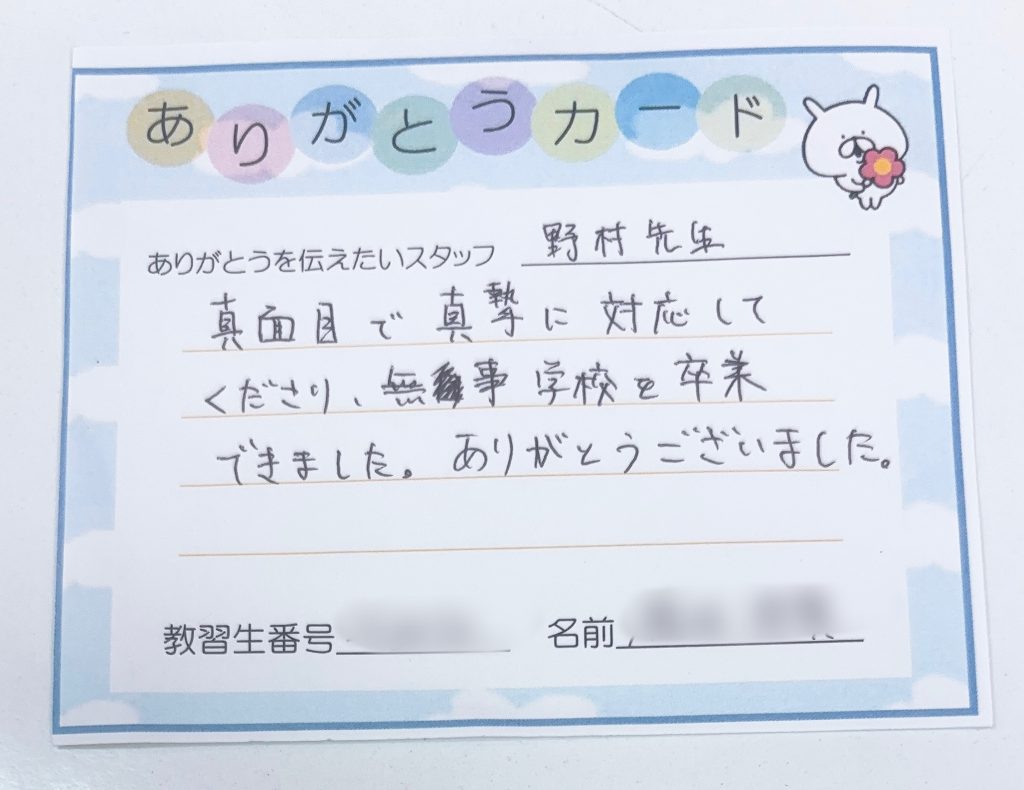 ありがとうカード
ありがとうを伝えたいスタッフ 野村先生
真面目で真摯に対応して
くださり、無事学校を卒業
できました。ありがとうございました。
教習生番号 名前